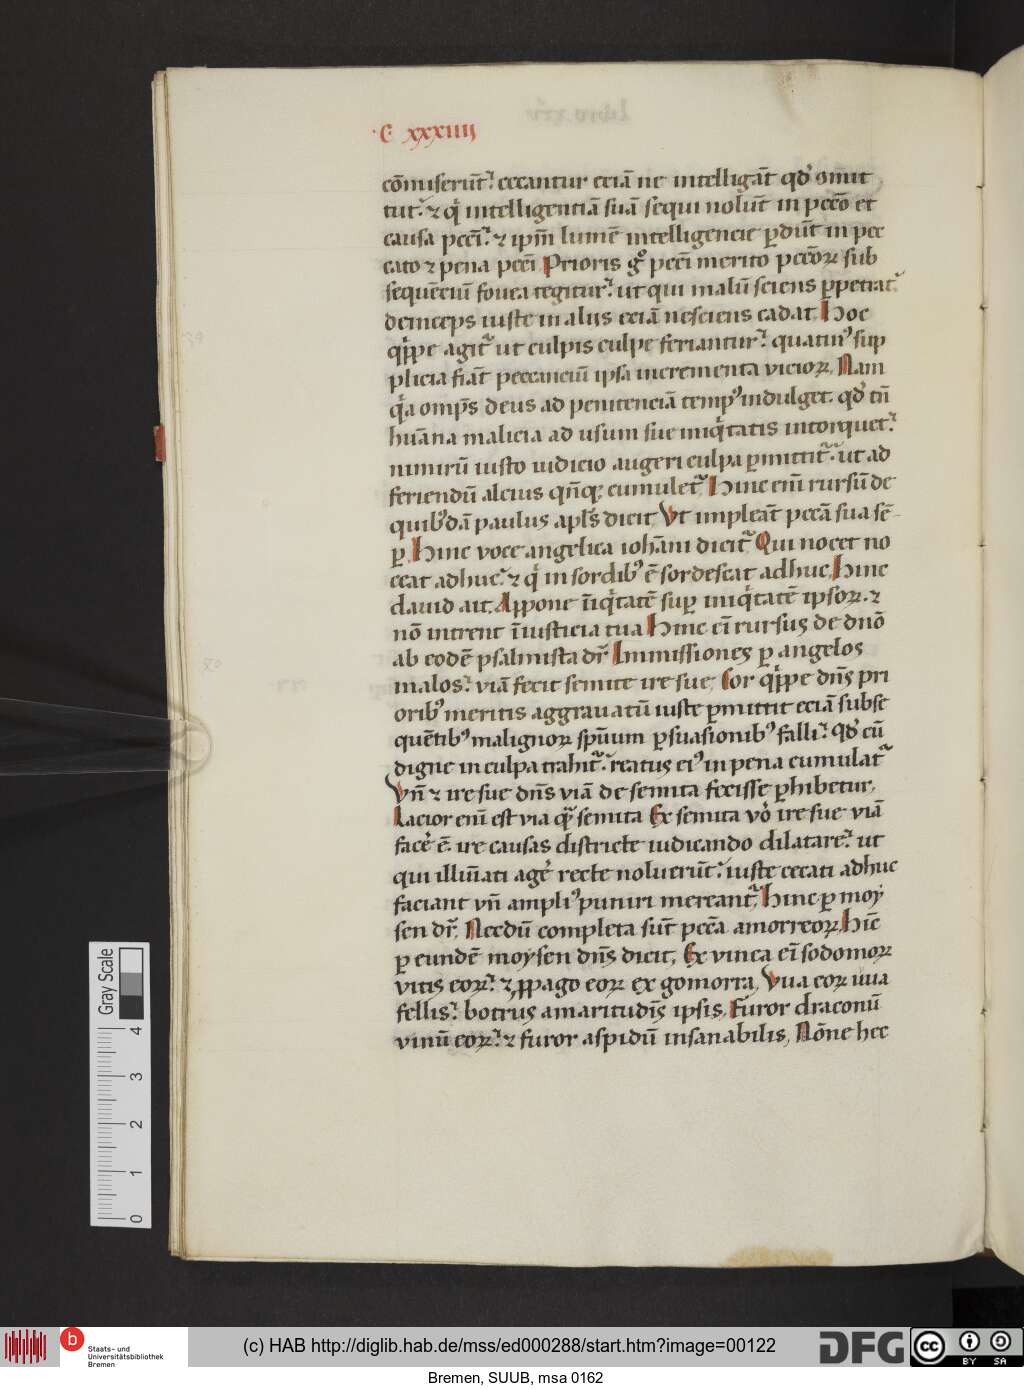 C xxxiiii
cōmiserūt. cecantur eciā ne intelligāt qđ omit
tut. ⁊ qͥ intelligentiā suā sequi nolūt in pctō et
causa pcti. ⁊ ipm̄ lumē intelligencie ꝑdūt in pec
cato ⁊ pena pcti. Prioris gͦ pcti merito pctōꝝ sub
sequēciū fouea tegitur. ut qui malū sciens ꝑpetrat.
deinceps iuste in alijs eciā nesciens cadat. Hoc
qͥppe agit᷑ ut culpis culpe feriantur. quatinꝰ sup
plicia fiāt peccanciū ipsa incrementa vicioꝝ. Nam
qͥa omps̄ deus ad penitenciā tempꝰ indulget. qđ tn̄
huāna malicia ad usum sue iniqͥtatis intorquet.
nimirū iusto iudicio augeri culpa ꝑmittit᷑. ut ad
feriendū alcius qn̄qꝫ cumulet᷑. Hinc enī rursū de
quibꝰdā paulus apls̄ dicit. Vt impleāt pctā sua sē
ꝑ. Hinc voce angelica iohāni dicit᷑. Qui nocet no
ceat adhuc. ⁊ qͥ in sordibꝰ ē sordescat adhuc. Hinc
dauid ait. Appone īiqͥtatē suꝑ iniqͥtatē ipsoꝝ. ⁊
nō intrent ī iusticia tua. Hinc eī rursus de dnō
ab eodē psalmista dr̄. Immissiones ꝑ angelos
malos. viā fecit semite ire sue. Cor qͥppe dn̄s pri
oribꝰ meritis aggrauatū iuste ꝑmittit eciā subse
quētibꝰ malignoꝝ spūum ꝑsuasionibꝰ falli. Qđ cū
digne in culpa trahit᷑. reatus eiꝰ in pena cumulat᷑
Vn̄ ⁊ ire sue dn̄s viā de semita fecisse ꝑhibetur.
Lacior enī est via qͣꝫ semita. Ex semita vͦ ire sue viā
facē ē. ire causas districte iudicando dilatare. ut
qui illuīati agē recte noluerūt. iuste cecati adhuc
faciant vn̄ ampliꝰ puniri mereant᷑. Hinc ꝑ moy
sen dr̄. Necdū completa sūt pctā amorreoꝝ. Hīc
ꝑ eundē moysen dn̄s dicit. Ex vinea eī sodomoꝝ
vitis eoꝝ. ⁊ ꝓpago eoꝝ ex gomorra. Vua eoꝝ uua
fellis. botrus amaritudīs ipsis. Furor draconū
vinū eoꝝ. ⁊ furor aspidū insanabilis. Nōne hec
Gray Scale
4
3
2
1
0
b
Staats- und
Universitätsbibliothek
Bremen
(c) HAB http://diglib.hab.de/mss/ed000288/start.htm?image=00122
DFG
cc
BY SA
Bremen, SUUB, msa 0162